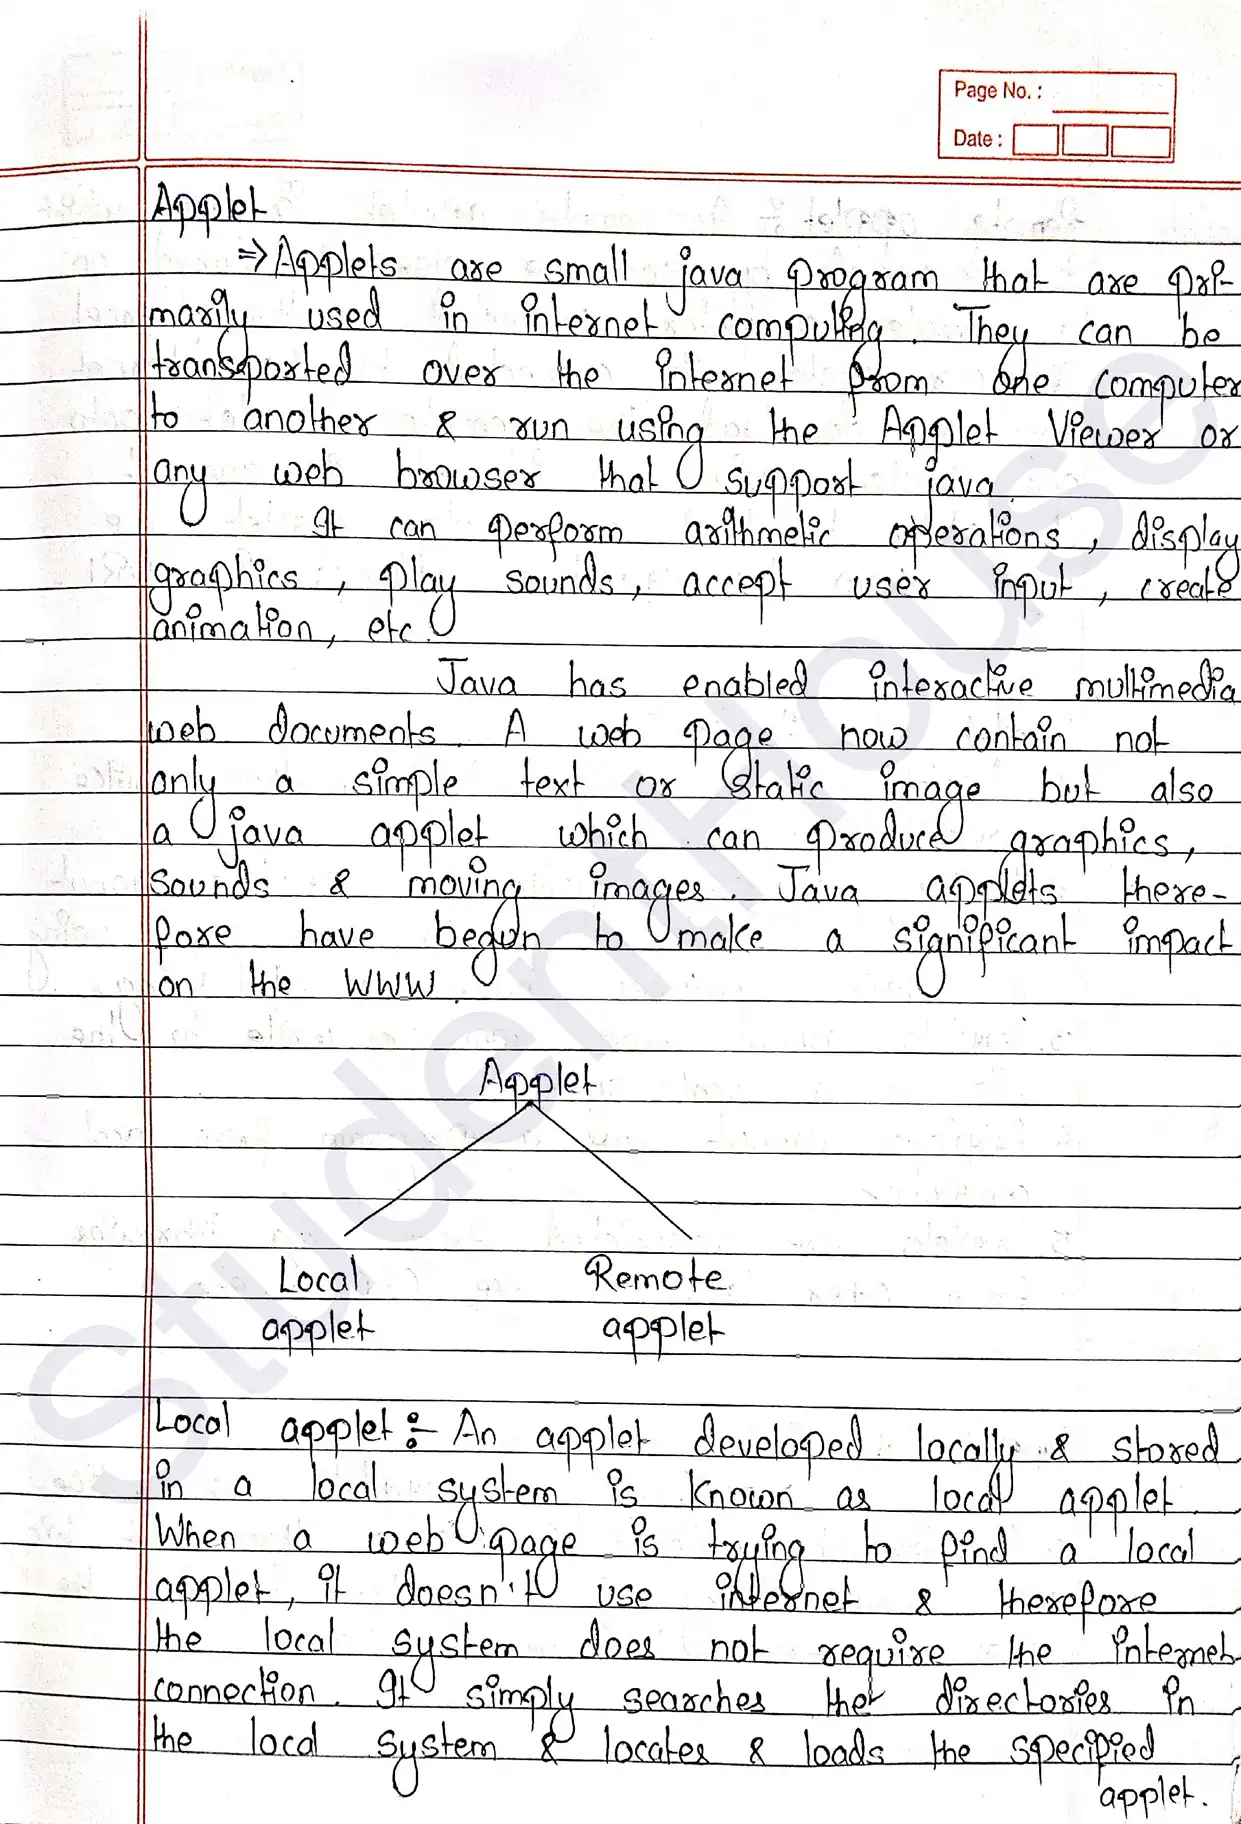 Page No. :
Date :
Applet
⇒ Applets are small java program that are pri-
marily used in internet computing. They can be
transported over the internet from one computer
to another & run using the Applet Viewer or
any web browser that support java.
It can perform arithmetic operations, display
graphics, play sounds, accept user input, create
animation, etc.
Java has enabled interactive multimedia
web documents. A web page now contain not
only a simple text or static image but also
a java applet which can produce graphics,
sounds & moving images. Java applets there-
fore have begun to make a significant impact
on the WWW.
Applet
Local Remote
applet applet
Local applet :- An applet developed locally & stored
in a local system is known as local applet.
When a web page is trying to find a local
applet, it doesn't use internet & therefore
the local system does not require the internet
connection. It simply searches the directories in
the local system & locates & loads the specified
applet.
StudentHouse